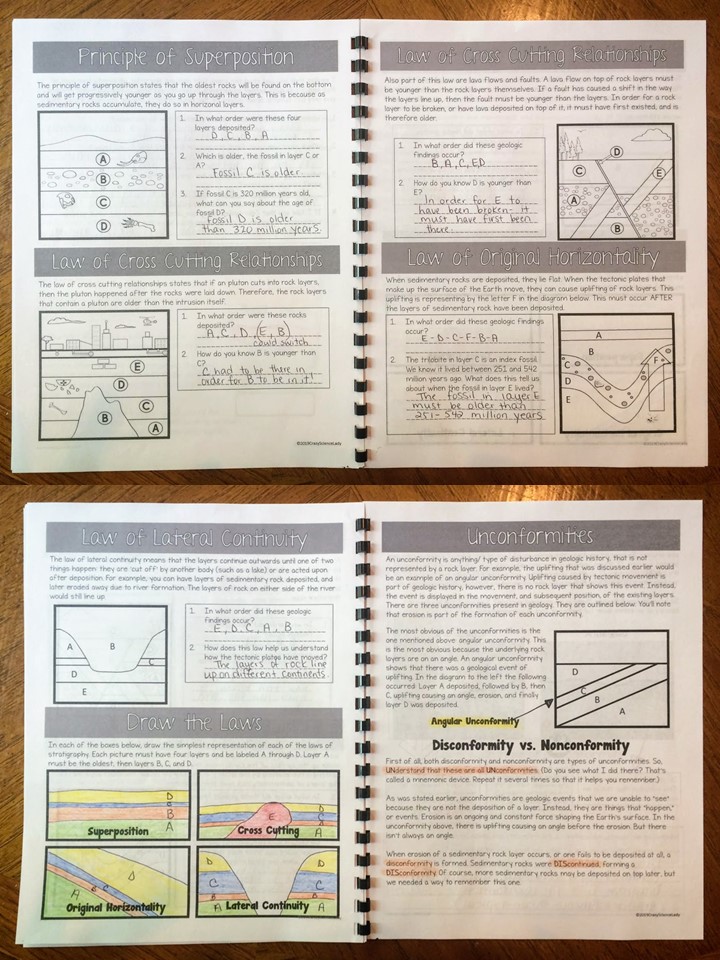 Principle of Superposition
The principle of superposition states that the oldest rocks will be found on the bottom
and will get progressively younger as you go up through the layers. This is because as
sedimentary rocks accumulate, they do so in horizonal layers.
A
B
C
D
1. In what order were these four
layers deposited?
D, C, B, A
2. Which is older, the fossil in layer C or
A?
Fossil C is older
3. If fossil C is 320 million years old,
what can you say about the age of
fossil D?
Fossil D is older
than 320 million years.
Law of Cross Cutting Relationships
The law of cross cutting relationships states that if an pluton cuts into rock layers,
then the pluton happened after the rocks were laid down. Therefore, the rock layers
that contain a pluton are older than the intrusion itself.
E
D
C
B
A
1. In what order were these rocks
deposited?
A, C, D, (E, B)
could switch
2. How do you know B is younger than
C?
C had to be there in
order for B to be in it!
Law of Cross Cutting Relationships
Also part of this law are lava flows and faults. A lava flow on top of rock layers must
be younger than the rock layers themselves. If a fault has caused a shift in the way
the layers line up, then the fault must be younger than the layers. In order for a rock
layer to be broken, or have lava deposited on top of it, it must have first existed, and is
therefore older.
1. In what order did these geologic
findings occur?
B, A, C, E, D
2. How do you know D is younger than
E?
In order for E to
have been broken- it
must have first been
there
D
C
E
A
B
Law of Original Horizontality
When sedimentary rocks are deposited, they lie flat. When the tectonic plates that
make up the surface of the Earth move, they can cause uplifting of rock layers. This
uplifting is representing by the letter F in the diagram below. This must occur AFTER
the layers of sedimentary rock have been deposited.
1. In what order did these geologic findings
occur?
E-D-C-F-B-A
2. The trilobite in layer C is an index fossil.
We know it lived between 251 and 542
million years ago. What does this tell us
about when the fossil in layer E lived?
The fossil in layer E
must be older than
251-542 million years
A
B
C
D
E
F
Law of Lateral Continuity
The law of lateral continuity means that the layers continue outwards until one of two
things happen: they are 'cut off' by another body (such as a lake) or are acted upon
after deposition. For example, you can have layers of sedimentary rock deposited, and
later eroded away due to river formation. The layers of rock on either side of the river
would still line up.
A
B
C
D
E
1. In what order did these geologic
findings occur?
E, D, C, A, B
2. How does this law help us understand
how the tectonic plates have moved?
The layers of rock line
up on different continents
Draw the Laws
In each of the boxes below, draw the simplest representation of each of the laws of
stratigraphy. Each picture must have four layers and be labeled A through D. Layer A
must be the oldest, then layers B, C, and D.
D
C
B
A
Superposition
E
D
C
B
A
Cross Cutting
A B C D
Original Horizontality
D D
C C
B B
A A
Lateral Continuity
Unconformities
An unconformity is anything/ type of disturbance in geologic history, that is not
represented by a rock layer. For example, the uplifting that was discussed earlier
would be an example of an angular unconformity. Uplifting caused by tectonic movement is
part of geologic history, however, there is no rock layer that shows this event. Instead,
the event is displayed in the movement, and subsequent position, of the existing layers.
There are three unconformities present in geology. They are outlined below. You'll note
that erosion is part of the formation of each unconformity.
The most obvious of the unconformities is the
one mentioned above: angular unconformity. This
is the most obvious because the underlying rock
layers are on an angle. An angular unconformity
shows that there was a geological event of
uplifting. In the diagram to the left the following
occurred: Layer A deposited, followed by B, then
C, uplifting causing an angle, erosion, and finally
layer D was deposited.
Angular Unconformity
D
C
B
A
Disconformity vs. Nonconformity
First of all, both disconformity and nonconformity are types of unconformities. So,
UNderstand that these are all UNconformities. (Do you see what I did there? That's
called a mnemonic device. Repeat it several times so that it helps you remember.)
As was stated earlier, unconformities are geologic events that we are unable to "see"
because they are not the deposition of a layer. Instead, they are things that "happen,"
or events. Erosion is an ongoing and constant force shaping the Earth's surface. In the
unconformity above, there is uplifting causing an angle before the erosion. But there
isn't always an angle.
When erosion of a sedimentary rock layer occurs, or one fails to be deposited at all, a
disconformity is formed. Sedimentary rocks were DIScontinued, forming a
DISconformity. Of course, more sedimentary rocks may be deposited on top later, but
we needed a way to remember this one.